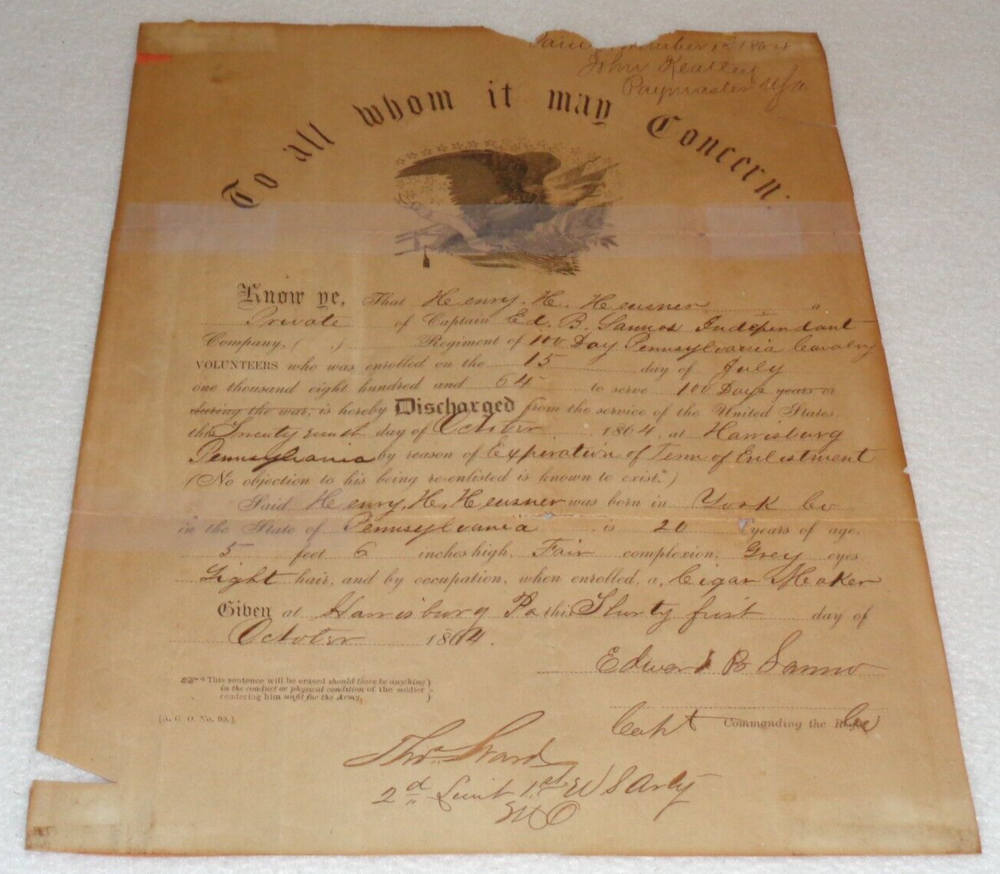 1864
John Keatley
Paymaster USA
To all whom it may Concern.
Know ye, That Henry. H. Heusner a
Private of Captain Ed. B. Sannos Independant
Company, ( ) Regiment of 100 Day Pennsylvania Cavalry
VOLUNTEERS who was enrolled on the 15 day of July
one thousand eight hundred and 64 to serve 100 Days years or
during the war, is hereby Discharged from the service of the United States,
this day of October 1864, at Harrisburg
Pennsylvania by reason of Expiration of Term of Enlistment
(No objection to his being re-enlisted is known to exist.*)
Said Henry. H. Heusner was born in York Co
in the State of Pennsylvania is 20 years of age,
5 feet 6 inches high, Fair complexion, Grey eyes
Light hair, and by occupation, when enrolled, a, Cigar Maker
Given at Harrisburg Pa this Thirty first day of
October 1864.
Edward B Sanno
* This sentence will be erased should there be anything
in the conduct or physical condition of the soldier
rendering him unfit for the Army.
[A. G. O. No. 99.]
Capt Commanding the Co
Thos Ward
2d Lieut 1st U S Arty